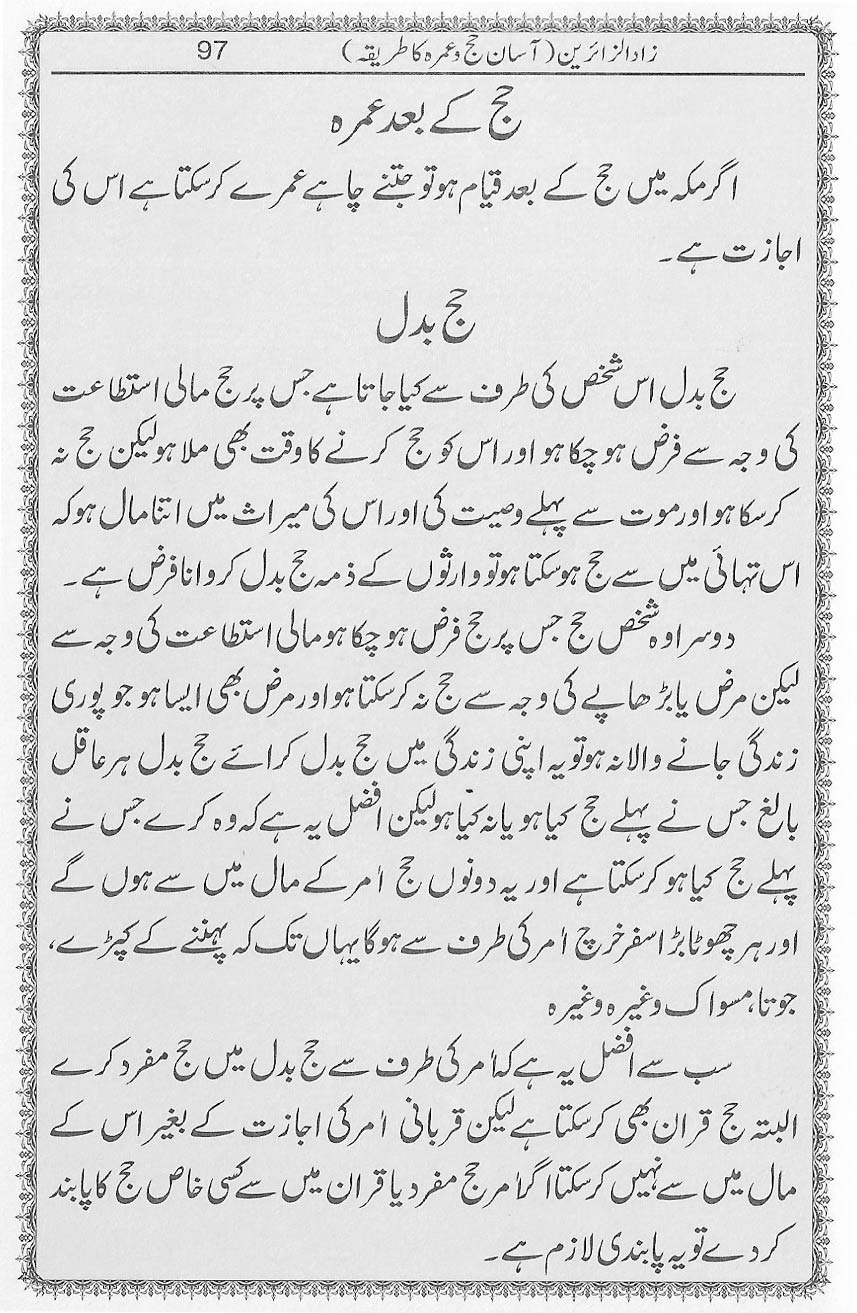 زاد الزائرین (آسان حج و عمرہ کا طریقہ) 97
حج کے بعد عمرہ
اگر مکہ میں حج کے بعد قیام ہو تو جتنے چاہے عمرے کر سکتا ہے اس کی
اجازت ہے۔
حج بدل
حج بدل اس شخص کی طرف سے کیا جاتا ہے جس پر حج مالی استطاعت
کی وجہ سے فرض ہو چکا ہو اور اس کو حج کرنے کا وقت بھی ملا ہو لیکن حج نہ
کر سکا ہو اور موت سے پہلے وصیت کی اور اس کی میراث میں اتنا مال ہو کہ
اس تہائی میں سے حج ہو سکتا ہو تو وارثوں کے ذمہ حج بدل کروانا فرض ہے۔
دوسرا وہ شخص حج جس پر حج فرض ہو چکا ہو مالی استطاعت کی وجہ سے
لیکن مرض یا بڑھاپے کی وجہ سے حج نہ کر سکتا ہو اور مرض بھی ایسا ہو جو پوری
زندگی جانے والا نہ ہو تو یہ اپنی زندگی میں حج بدل کرائے حج بدل ہر عاقل
بالغ جس نے پہلے حج کیا ہو یا نہ کیا ہو لیکن افضل یہ ہے کہ وہ کرے جس نے
پہلے حج کیا ہو کر سکتا ہے اور یہ دونوں حج اٰمر کے مال میں سے ہوں گے
اور ہر چھوٹا بڑا سفر خرچ اٰمر کی طرف سے ہوگا یہاں تک کہ پہننے کے کپڑے،
جوتا، مسواک وغیرہ وغیرہ
سب سے افضل یہ ہے کہ اٰمر کی طرف سے حج بدل میں حج مفرد کرے
البتہ حج قران بھی کر سکتا ہے لیکن قربانی اٰمر کی اجازت کے بغیر اس کے
مال میں سے نہیں کر سکتا اگر اٰمر حج مفرد یا قران میں سے کسی خاص حج کا پابند
کر دے تو یہ پابندی لازم ہے۔